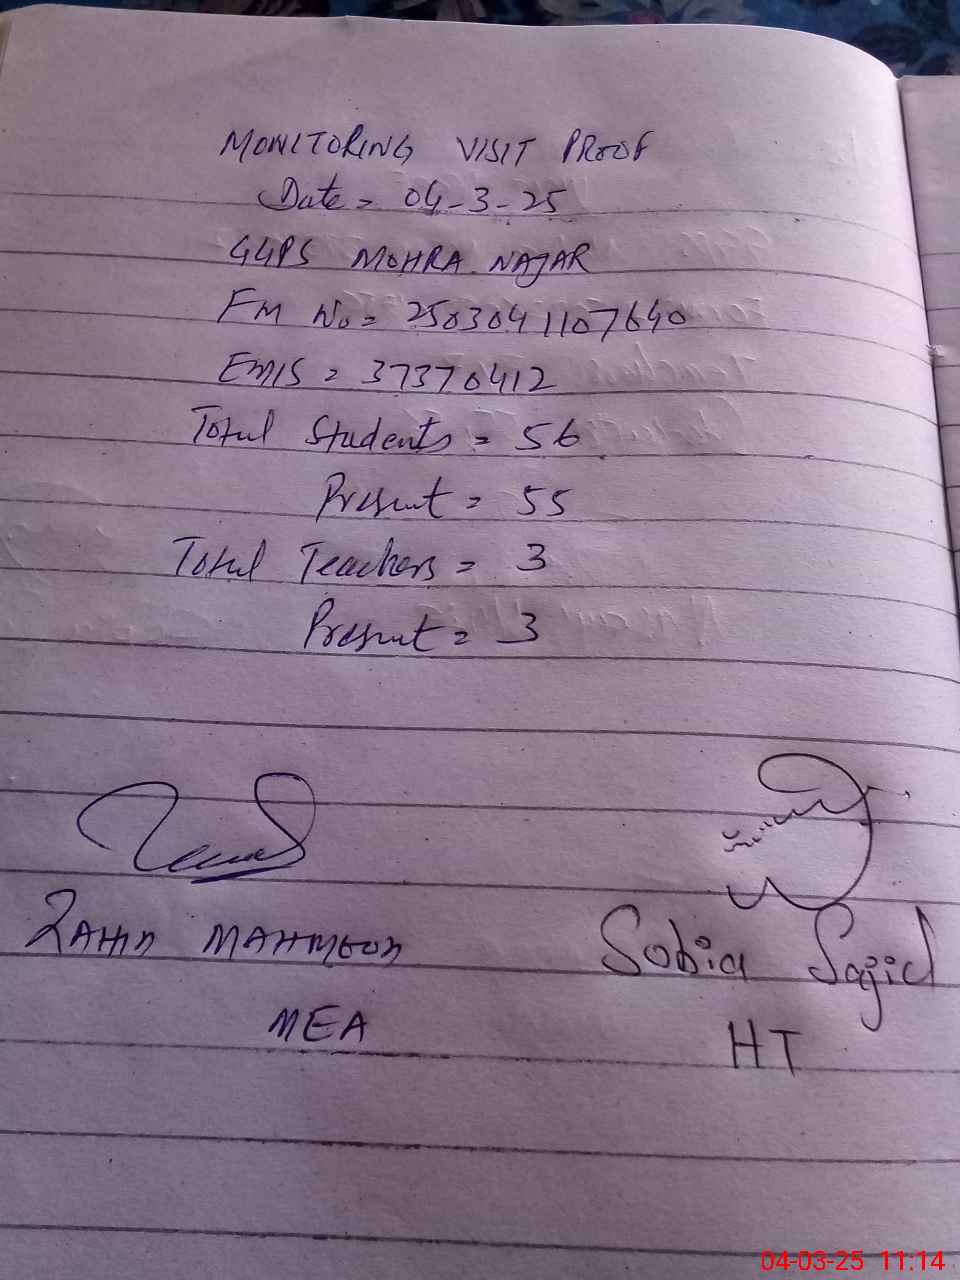 MONITORING VISIT PROOF
Date = 04-3-25
GGPS MOHRA NAJAR
FM No = 2503041107640
EMIS = 37370412
Total Students = 56
Present = 55
Total Teachers = 3
Present = 3
ZAHID MAHMOOD
Sobia Sajid
MEA
HT
04-03-25 11:14